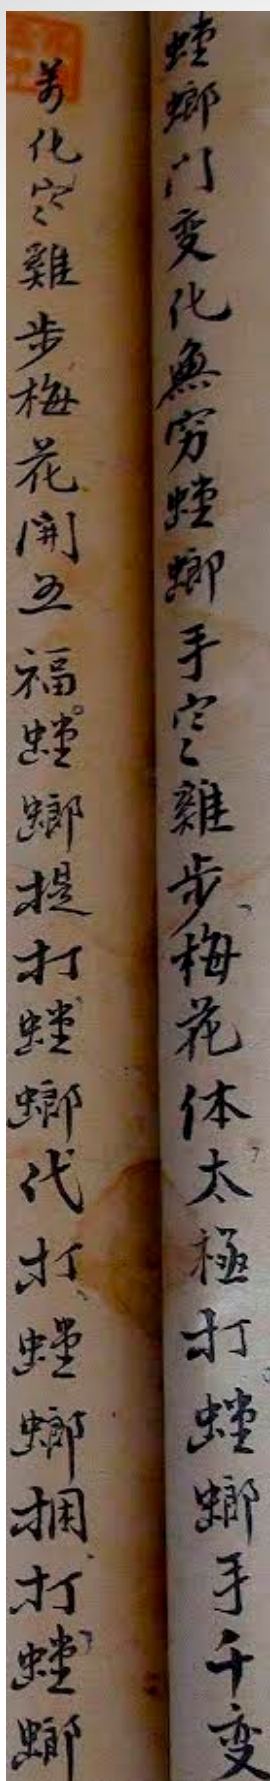 螳螂门变化無穷螳螂手空雞步梅花体太極打螳螂手千变
万化空雞步梅花開五福螳螂提打螳螂代打螳螂捆打螳螂